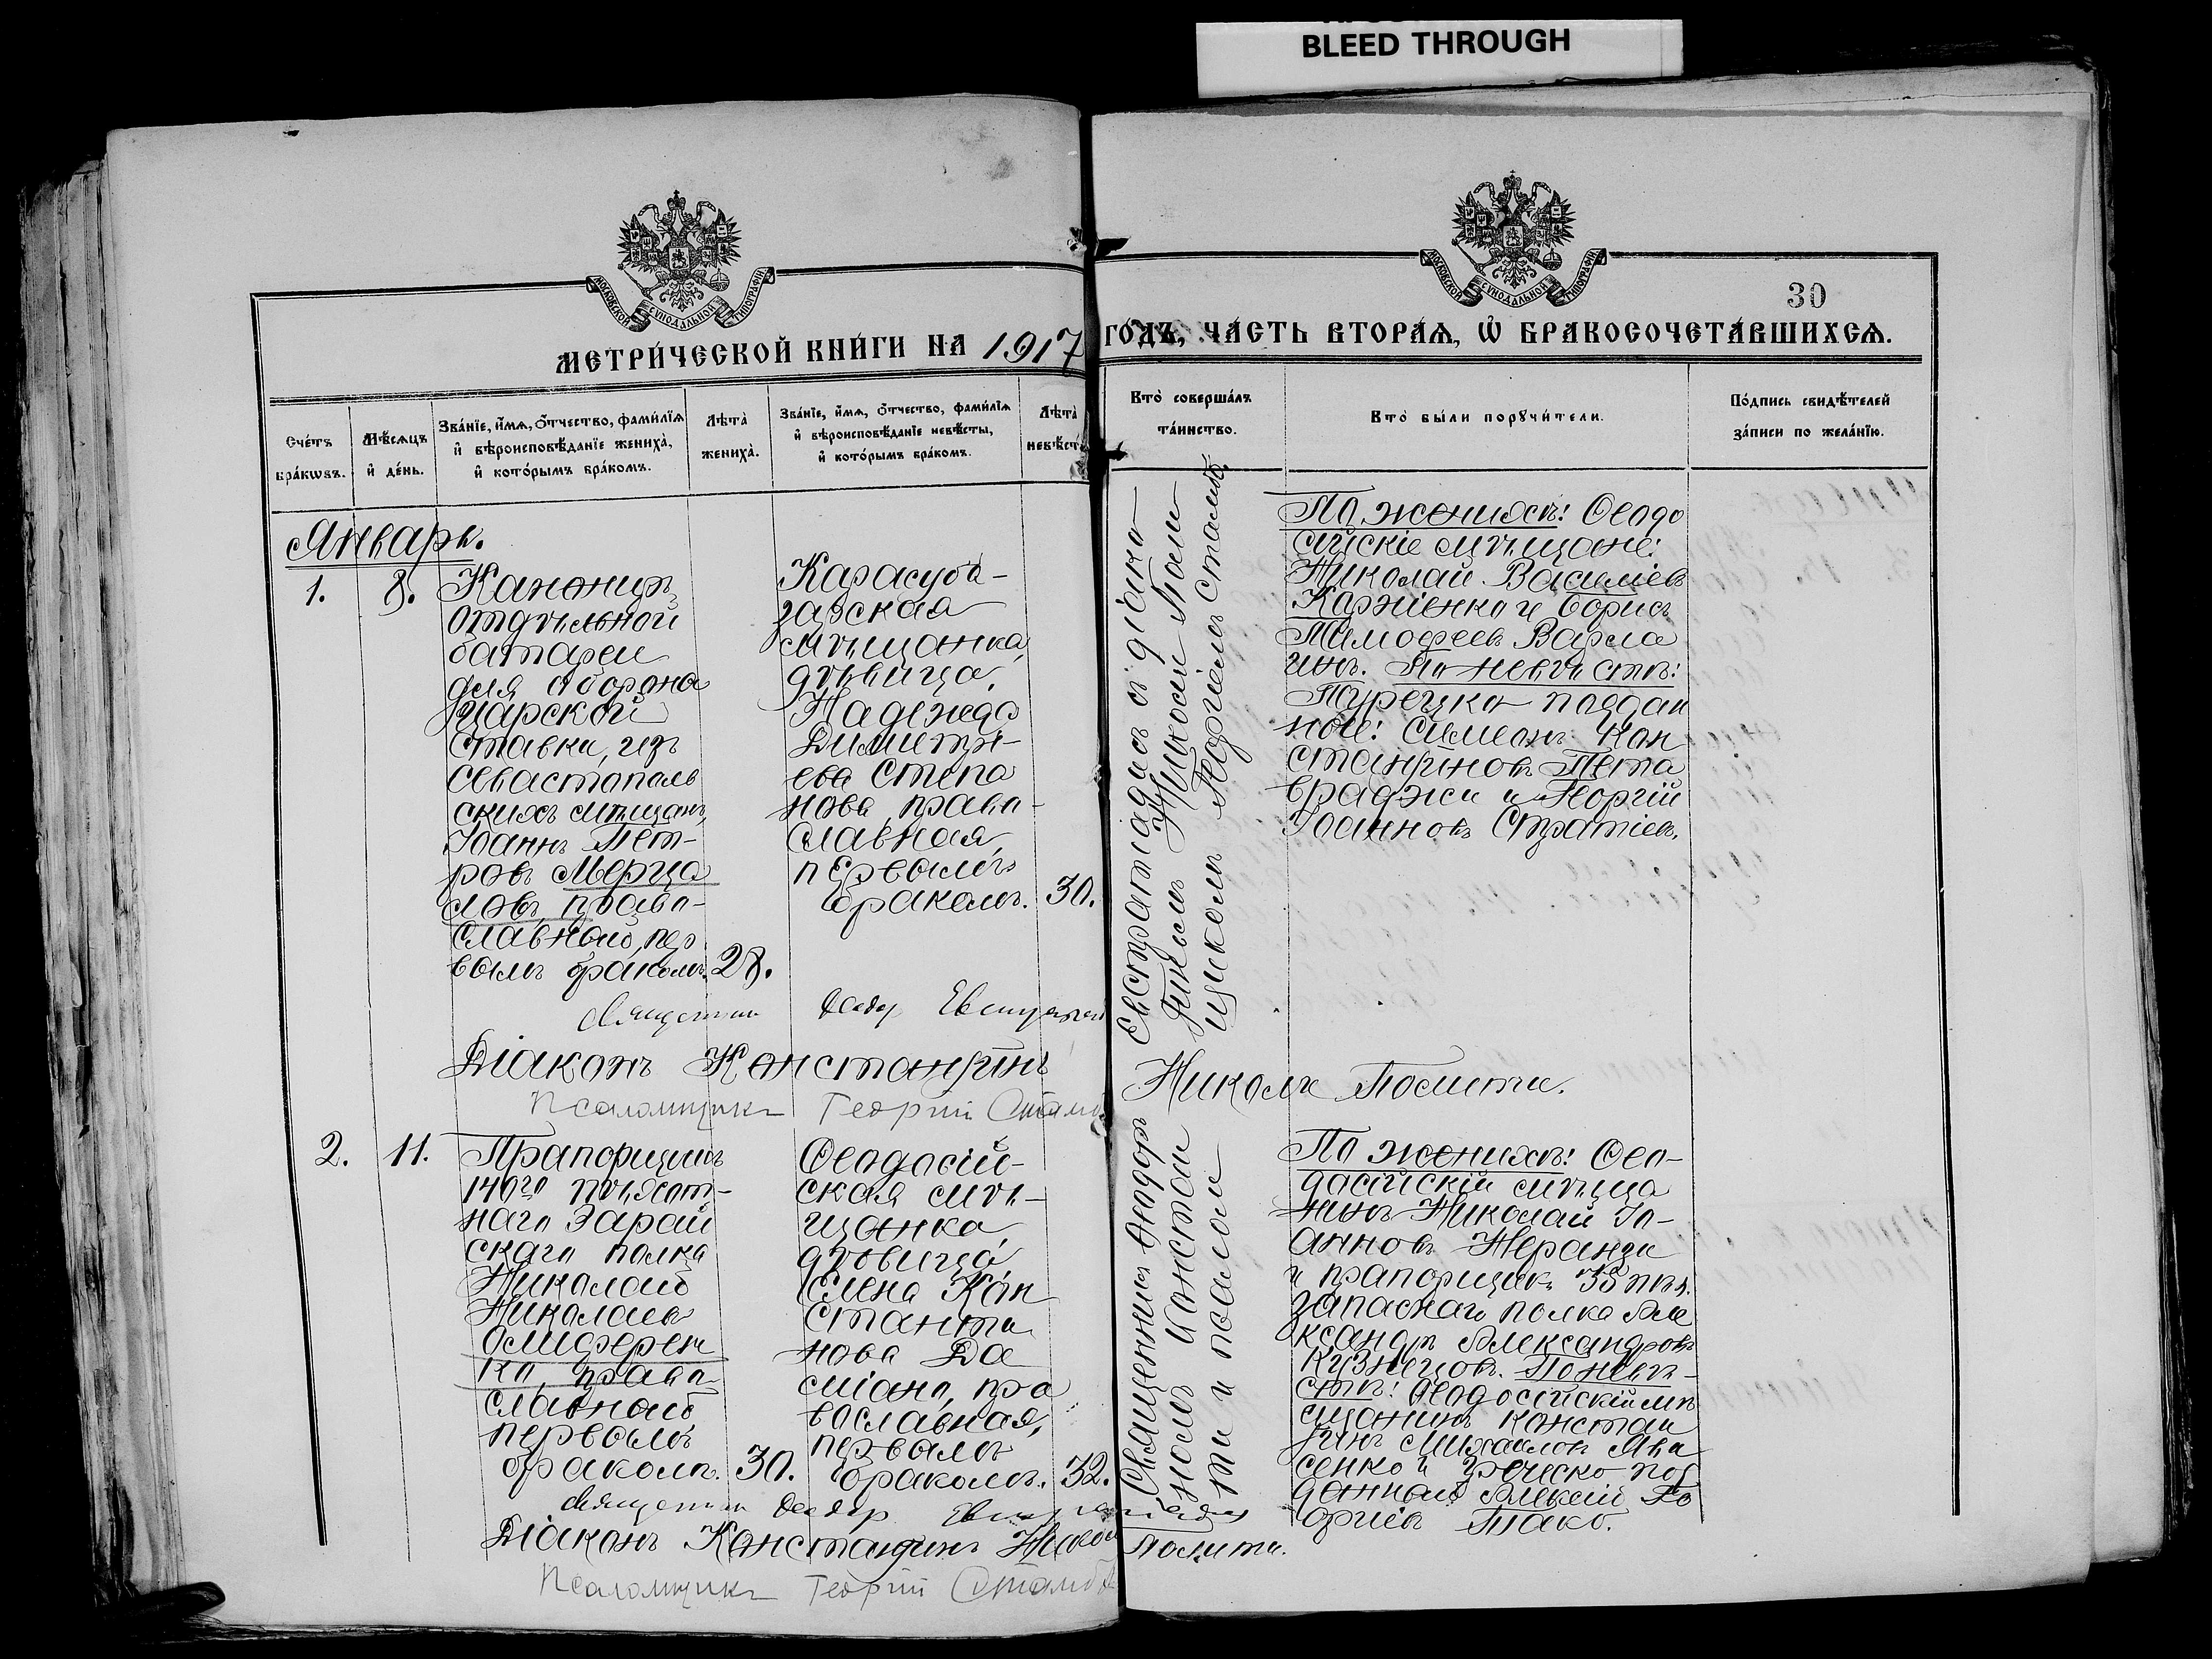 BLEED THROUGH
МОСКОВСКОЙ СѴНОДАЛЬНОЙ ТИПОГРАФІИ
МОСКОВСКОЙ СѴНОДАЛЬНОЙ ТИПОГРАФІИ
30
МЕТРИ́ЧЕСКОЙ КНИ́ГИ НА 1917 ГО́ДЪ, ЧА́СТЬ ВТОРА́Ѧ, Ѡ҆ БРАКОСОЧЕТА́ВШИХСѦ.
Сче́тъ
бра́кѡвъ.
Мѣ́сѧцъ
и҆ де́нь.
Зва́нїе, и҆́мѧ, о҆́тчество, фами́лїѧ
и҆ вѣроисповѣ́данїе жениха̀,
и҆ кото́рымъ бра́комъ.
Лѣта̀
жениха̀.
Зва́нїе, и҆́мѧ, о҆́тчество, фами́лїѧ
и҆ вѣроисповѣ́данїе невѣ́сты,
и҆ кото́рымъ бра́комъ.
Лѣта̀
невѣ́ст
Кто̀ соверша́лъ
та́инство.
Кто̀ бы́ли порꙋчи́тели.
По́дпись свидѣ́телей
за́писи по жела́нїю.
Январь.
1.
8.
Канониръ
отдѣльной
батареи
для оборона
царской
ставки, изъ
Севастополь
скихъ мѣщанъ,
Іоаннъ Пет-
ровъ Мерца
ловъ, право-
славный, пер
вымъ бракомъ.
28.
Карасуба-
зарская
мѣщанка,
дѣвица,
Надежда
Димитрі-
ева Степа
нова, право-
славная,
первымъ
бракомъ.
30.
Евстратіадисъ съ діако-
номъ Николаемъ Поли-
щикомъ Георгіемъ Стамб.
По женихѣ: Ѳеодо
сійскіе мѣщане:
Николай Василіевъ
Карніенко и Борисъ
Тимофеевъ Варла
инъ. По невѣстѣ:
Турецко поддан
ные: Симеонъ Кон
стантиновъ Пета
враджи и Георгій
Іоанновъ Стратіевъ.
Священникъ Ѳеодор
Діаконъ Константинъ Николае Полити.
Псаломщикъ Георгій Стамб
2.
11.
Прапорщикъ
140го пѣхот-
наго Зарай
скаго полка
Николай
Николаевъ
Олиферен
ко, право-
славный
первымъ
бракомъ.
30.
Ѳеодосій-
ская мѣ-
щанка,
дѣвица,
Елена Кон
станти
нова Да
міано, пра
вославная,
первымъ
бракомъ.
32.
Священникъ Ѳеодоръ
номъ Констан
ти и псалом
По женихѣ: Ѳео-
досійскій мѣща
нинъ Николай Іо-
анновъ Неранзи
и прапорщикъ 35 пѣх.
запаснаго полка Але
ксандръ Александровъ
Кузнецовъ. По невѣ-
стѣ: Ѳеодосійскій мѣ
щанинъ Констан
тинъ Михаиловъ Ява
сенко и греческо-под
данный Алексій Ге
оргіевъ Тако.
Священникъ Ѳеодоръ
Діаконъ Константинъ Никол Полити.
Псаломщикъ Георгій Стамб